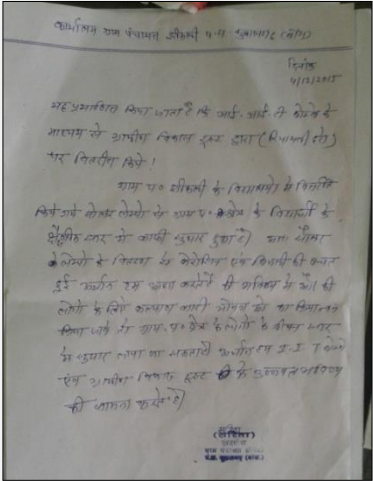 कार्यालय ग्राम पंचायत श्रीकली प.स.
दिनांक
4/12/2015
यह प्रमाणित किया जाता है कि आई. आई. टी बोम्बे के
माध्यम से ग्रामीण विकास ट्रस्ट द्वारा (रियायती दरों)
पर वितरीत किये!
ग्राम प० श्रीकली के विद्यालयों में वितरित
किये गये सोलर लेम्पो से ग्राम प० क्षेत्र के विद्यार्थी के
शैक्षणिक स्तर में काफी सुधार हुआ है)
लेम्पो के वितरण से केरोसिन एवं बिजली की बचत
हुई हम आशा करते है की भविष्य में भी
लोगो के लिए कल्याण कारी योजना
किया जावे तो ग्राम. प० क्षेत्र के लोगो के जीवन स्तर
में सुधार लाया जा सकता है I. I. T बोम्बे
एवं ग्रामीण विकास ट्रस्ट के उज्जवल भविष्य
की कामना करते है)
सरपंच